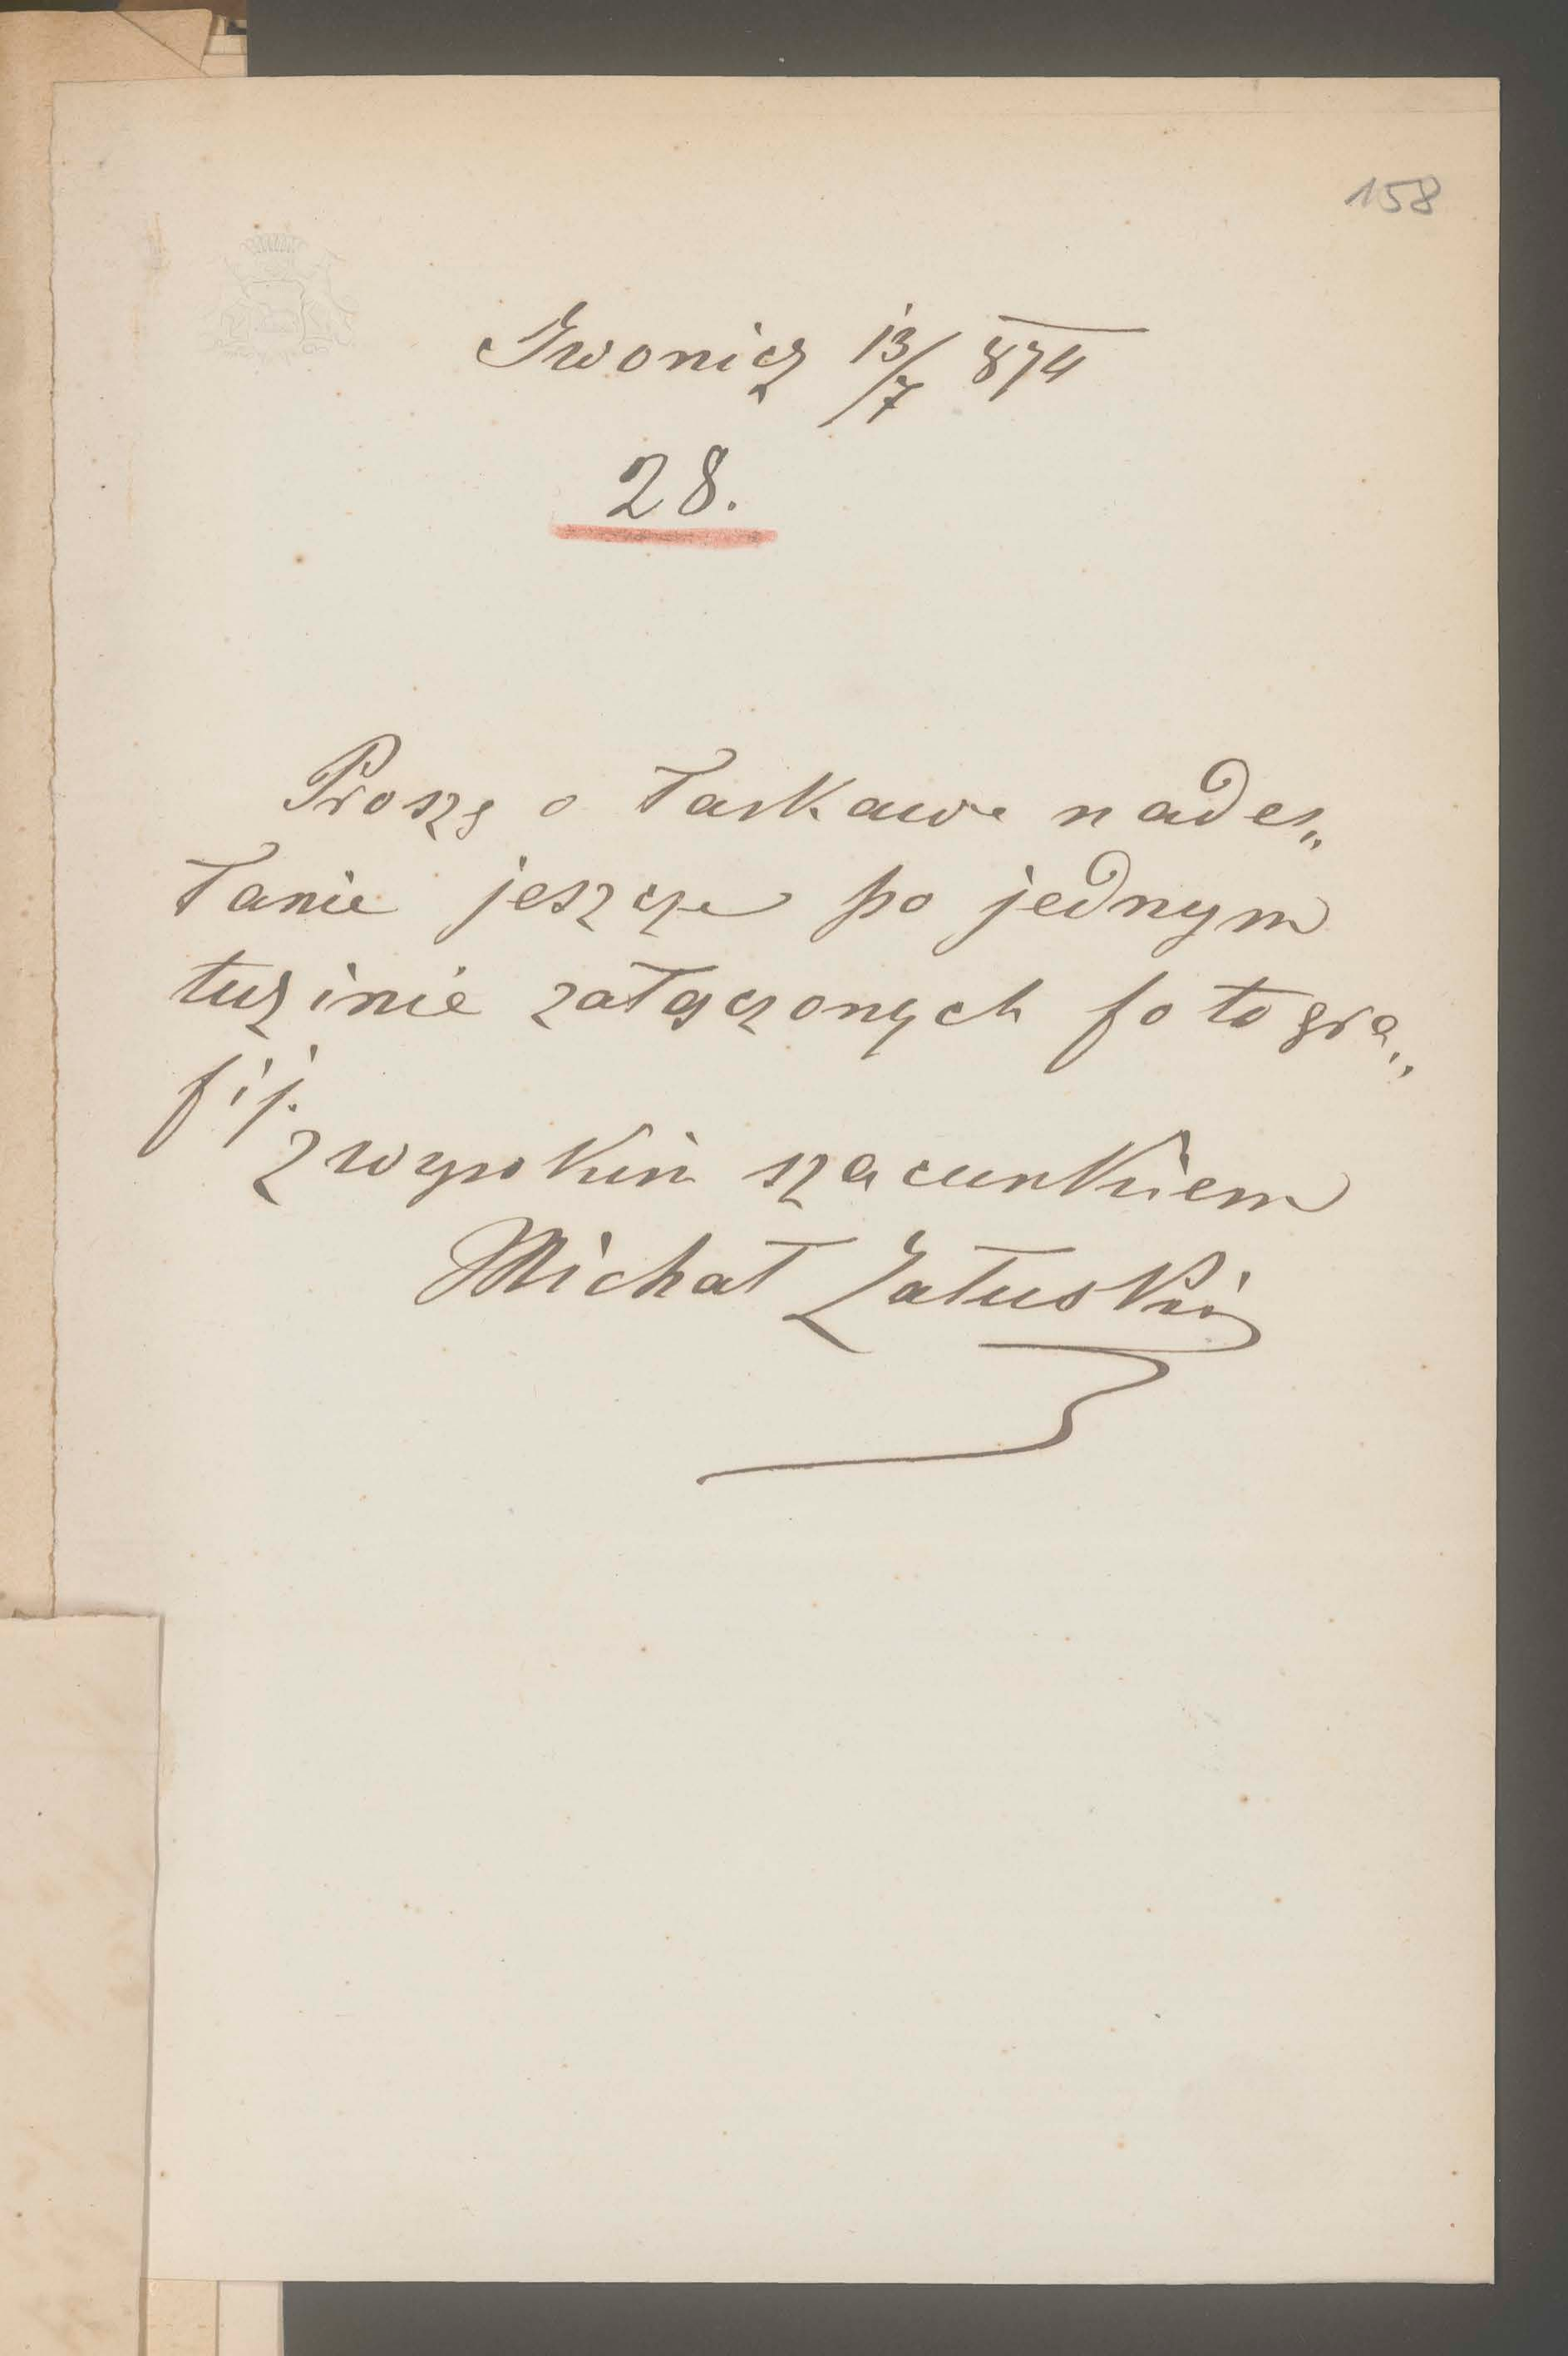 158
Iwonicz 13/7 874
28.
Proszę o łaskawe nades„
łanie jeszcze po jednym
tuzinie załączonych fotogra„
fij.
Z wysokim szacunkiem
Michał Załuski